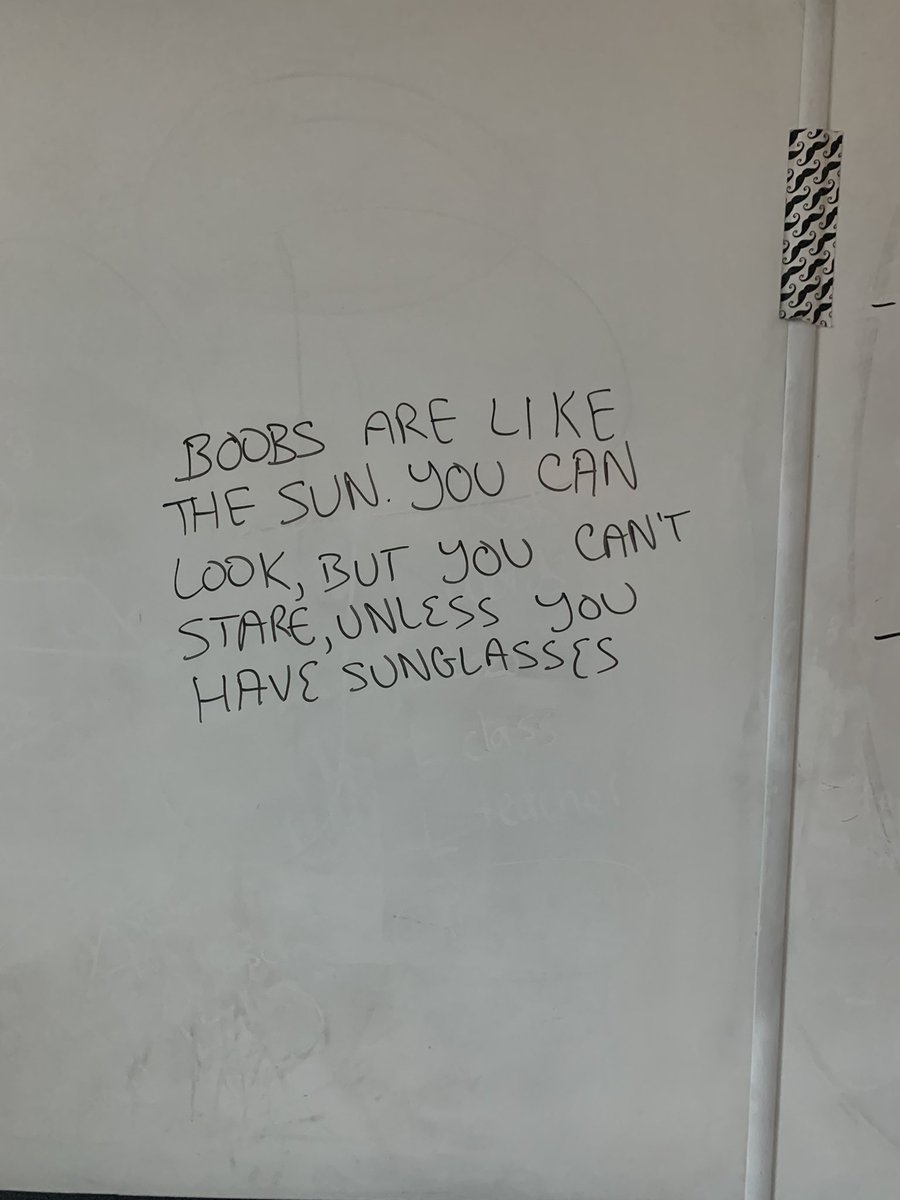 BOOBS ARE LIKE
THE SUN. YOU CAN
LOOK, BUT YOU CAN'T
STARE, UNLESS YOU
HAVE SUNGLASSES
class